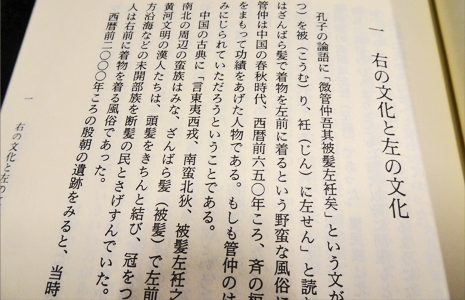 一 右の文化と左の文化
孔子の論語に「微管仲吾其被髪左衽矣」という文が
つ）を被（こうむ）り、衽（じん）に左せん」と読
はざんばら髪で着物を左前に着るという野蛮な風俗に
管仲は中国の春秋時代、西暦前六五〇年ころ、斉の桓
をまもって功績をあげた人物である。もしも管仲のは
みにじられていただろうということである。
中国の古典に「言東夷西戎、南蛮北狄、被髪左衽之
南北の周辺の蛮族はみな、ざんばら髪（被髪）で左前
黄河文明の漢人たちは、頭髪をきちんと結び、冠をつ
方沿海などの未開部族を断髪の民とさげすんでいた。
人は右前に着物を着る風俗であった。
西暦前二〇〇〇年ころの殷朝の遺跡をみると、当時
一 右の文化と左の